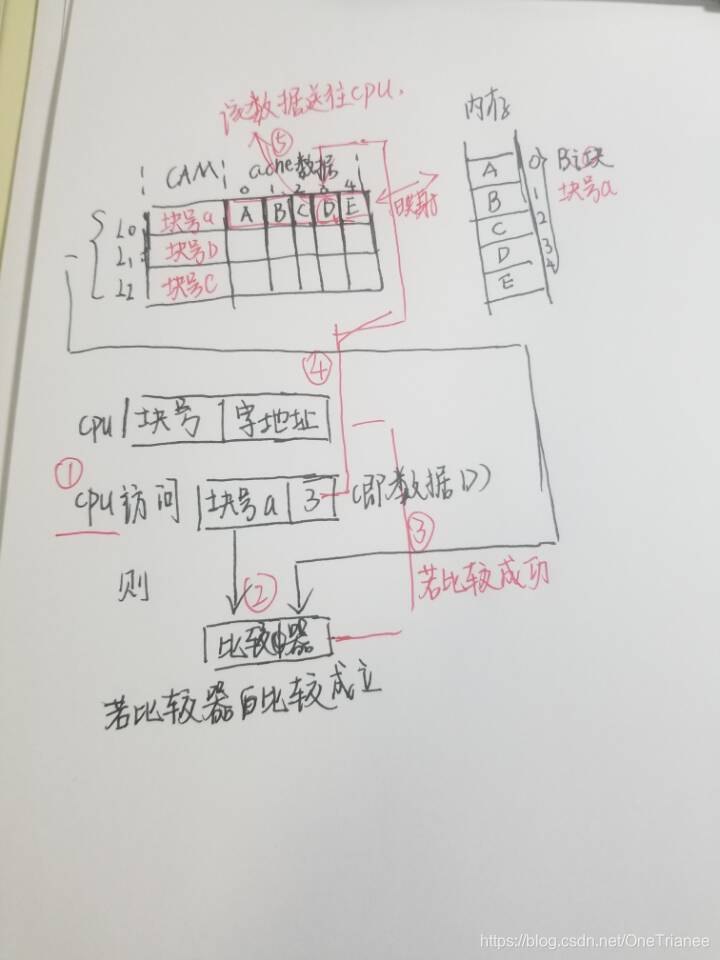 该数据送往CPU.
⑤
内存
CAM ache数据
0 1 2 3 4
L0 块号a A B C D E
映射
L1 块号D
L2 块号C
A 0
B 1
C 2
D 3
E 4
块
块号a
④
CPU 块号 字地址
①
CPU访问 块号a 3 (即数据D)
③
则
②
若比较成功
比较器
若比较器 比较成立
https://blog.csdn.net/OneTrianee